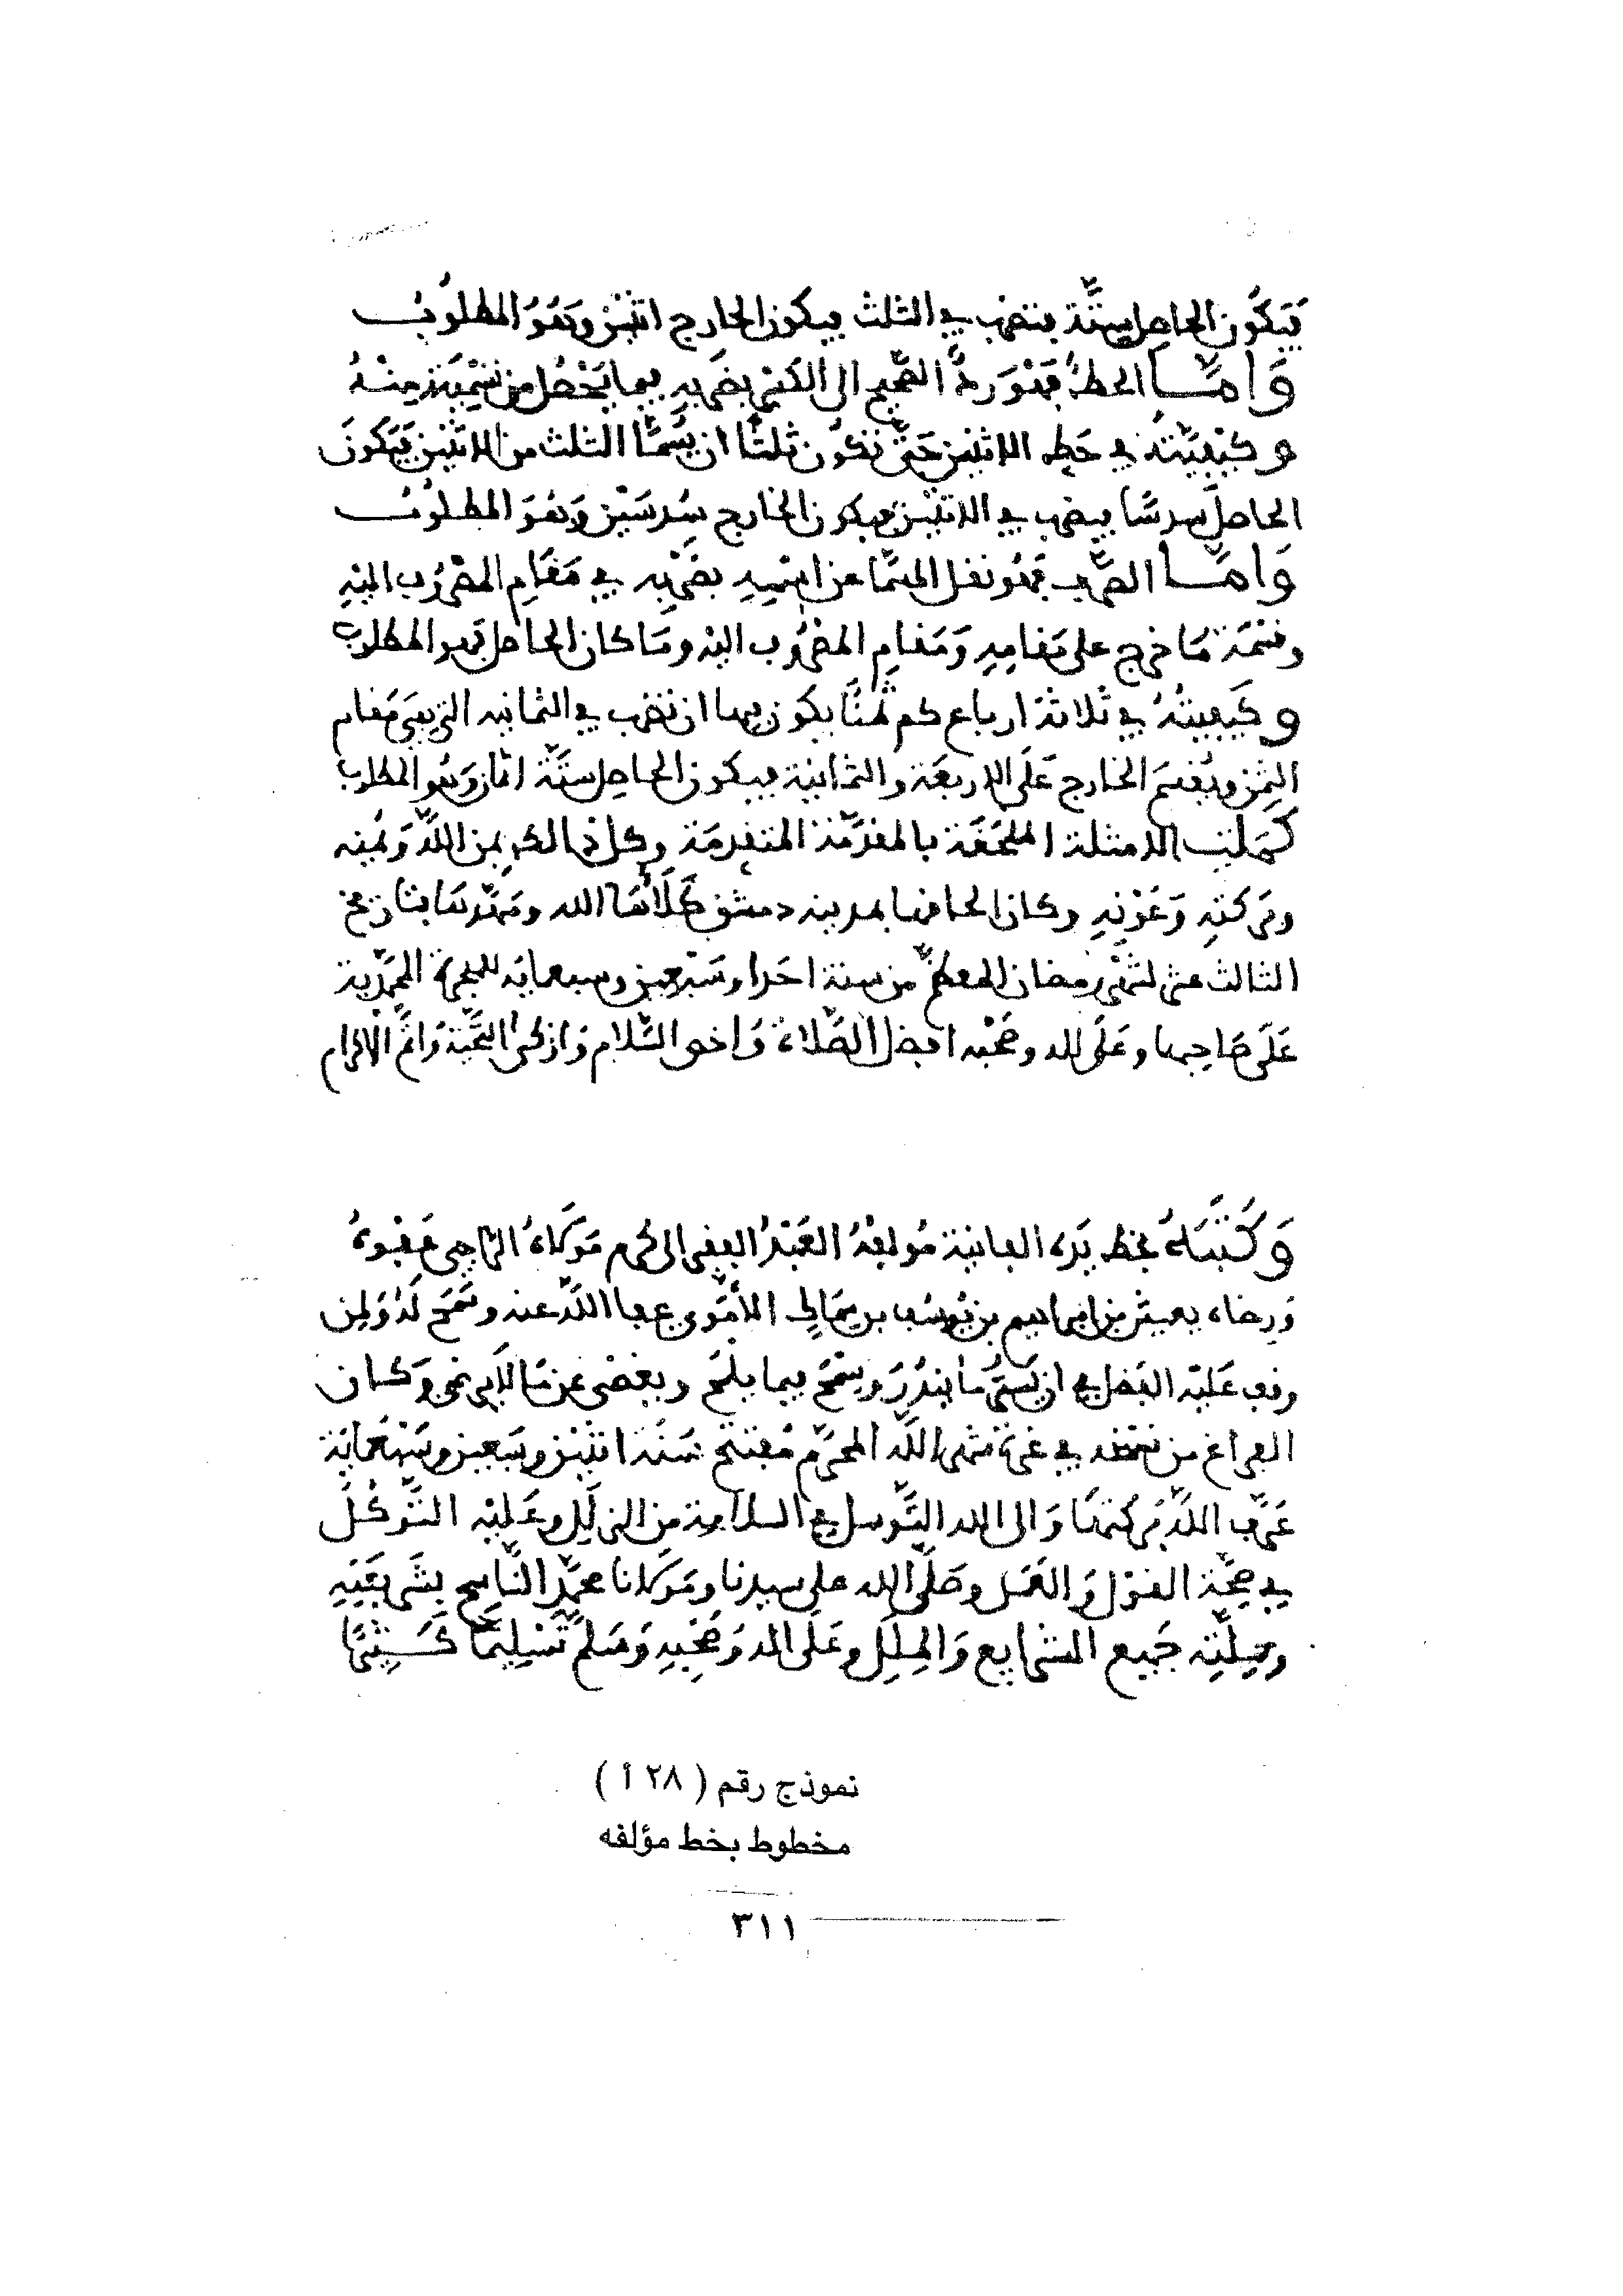 فَيَكُون الحاصِل ستَّة فتضرب في الثلث فيكون الخارج اثنَيْن وَهُوَ المطلُوبُ
وَأمَّا الحطُّ فَهْوَ ردُّ الصَّحِيح الى الكَسْر بضَرْبهِ فيما يَحْصُل من تَسْمِيَة مِنْهُ
وكيْفِيَّتهُ في حَطِّ الاثنَيْن حَتَّى تكُون ثلثًا ان يُسَمَّا الثلث من الاثنَيْن فَيَكونَ
الحاصلُ سدسًا فيضرب في الاثنَيْن فيكون الخارج سُدسَيْن وَهُوَ المطلُوبُ
وَأمَّا الصَّرف فَهُو نقل المسَمَّا من اسْمِهِ بضَرْبِهِ في مَقَامِ المضْرُوب اليْهِ
وقسْمَة مَا خرج على مَقامِهِ وَمَقامِ المضْرُوب اليْه ومَا كان الحاصل فَهو المطلوب
وكَيفِيتُهُ في ثلاثة ارباع كم ثمنًا يكون فيها ان تضرب في الثمانيه التي هِيَ مَقام
الثمن ويُقسَم الخارج عَلَى الاربعَة والثمانية فيكون الحاصِل ستَّة اثمان وَهُو المطلوب
كَمُلت الامثلة الملحَقَة بالمقدّمَة المتقدِمَة وكل ذالك بمن اللَّه وَيُمنِه
وبَركتِهِ وَعَوْنِهِ وكان الحاقها بمدينه دمشق كَلأَهَا الله ومَهَّدهَا بتاريخ
الثالث عشر لشَهْر رمضان المعظَّم من سنة احدا وسَبْعين وسبعمايَه للهجرة المحمَّدِية
عَلَى صَاحِبها وعَلَى اله وصَحْبه افضل الصَّلاة وَاخص السَّلام وَازكى التَّحِيَّة وَاتمِّ الاكرام
وَكُتبَهُ بخط يَده الفانية مُؤلفُهُ العَبْدُ الفقير الى كرم مَوْلاهُ الرَّاجي عَفْوهُ
وَرضاه يعيش بن ابراهيم بن يُوسُف بن سِمَاك الأمَوي عفا اللَّه عنه وسَمَح لَهُ وَلمن
وقف عَليْه الفضل في ان يَستُر مَا يَنْدُرُ وَيسْمَحَ فيما يلْمَح ويغْضي عن مَا لا يرضي وَكان
الفراغ من نَسْخه في غرَّة شهر اللَّه المحرَّم مُفتتح سَنَة اثنَيْن وسَبعين وسَبْعُمايَة
عَرَّف اللَّه بَركتهَا وَالى الله التَّوسل في السلامة من الزلَلِ وعَليْه التَّوكُلُ
في صِحَّة القوْل وَالعَمَل وصَلَّى الله على سيدنا ومَوْلانا محمَّدٍ النَّاسخ بشَريعَتِهِ
ومِلَّتِه جَمِيع الشرايع وَالمِلَل وعَلَى اله وَصَحْبِهِ وَسَلم تَسْلِيمًا كَثِيرًا
نموذج رقم ( ٢٨ أ )
مخطوط بخط مؤلفه
٣١١